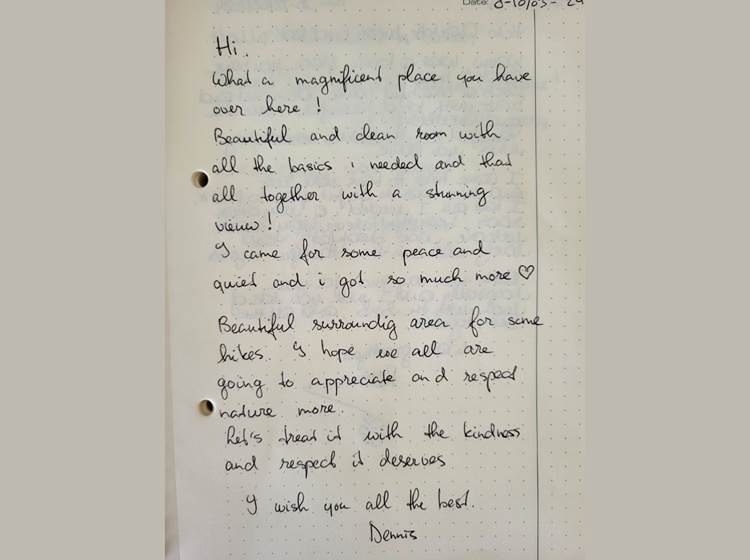 Date: 8-10/03-24
Hi.
What a magnificent place you have
over here !
Beautiful and clean room with
all the basics i needed and that
all together with a stunning
view!
I came for some peace and
quiet and i got so much more ♡
Beautiful surroundig area for some
hikes. I hope we all are
going to appreciate and respect
nature more.
Let's treat it with the kindness
and respect it deserves
I wish you all the best.
Dennis